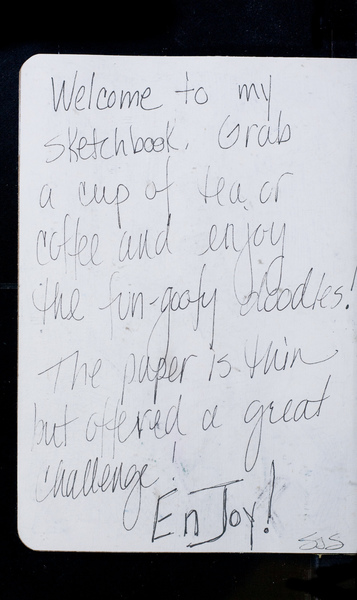 Welcome to my
sketchbook. Grab
a cup of tea or
coffee and enjoy
the fun-goofy doodles!
The paper is thin
but offered a great
challenge!
EnJoy!
SJS